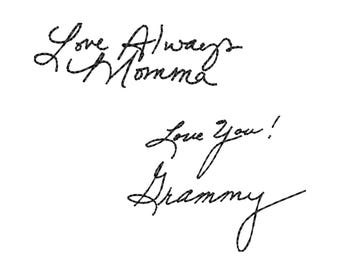 Love Always
Momma
Love You!
Grammy